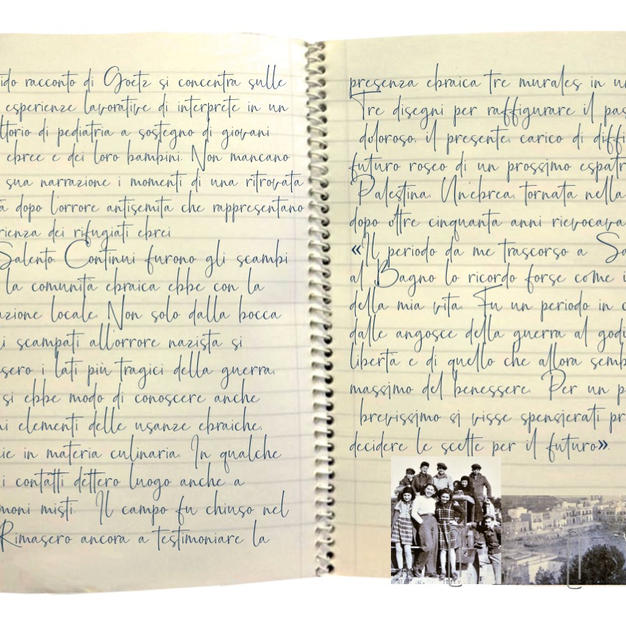 ido racconto di Goetz si concentra sulle
esperienze lavorative di interprete in un
ttorio di pediatria a sostegno di giovani
ebree e dei loro bambini. Non mancano
sua narrazione i momenti di una ritrovata
à dopo l'orrore antisemita che rappresentano
rienza dei rifugiati ebrei
Salento Continui furono gli scambi
la comunità ebraica ebbe con la
azione locale. Non solo dalla bocca
i scampati all'orrore nazista si
sero i lati più tragici della guerra,
si ebbe modo di conoscere anche
ni elementi delle usanze ebraiche,
ie in materia culinaria. In qualche
i contatti dettero luogo anche a
moni misti. Il campo fu chiuso nel
Rimasero ancora a testimoniare la
presenza ebraica tre murales in un
Tre disegni per raffigurare il pas
doloroso, il presente, carico di diffi
futuro roseo di un prossimo espatr
Palestina. Un'ebrea, tornata nella
dopo oltre cinquanta anni rievocava
«Il periodo da me trascorso a Sa
al Bagno lo ricordo forse come i
della mia vita. Fu un periodo in c
dalle angosce della guerra al godi
libertà e di quello che allora semb
massimo del benessere. Per un p
brevissimo si visse spensierati pr
decidere le scelte per il futuro».